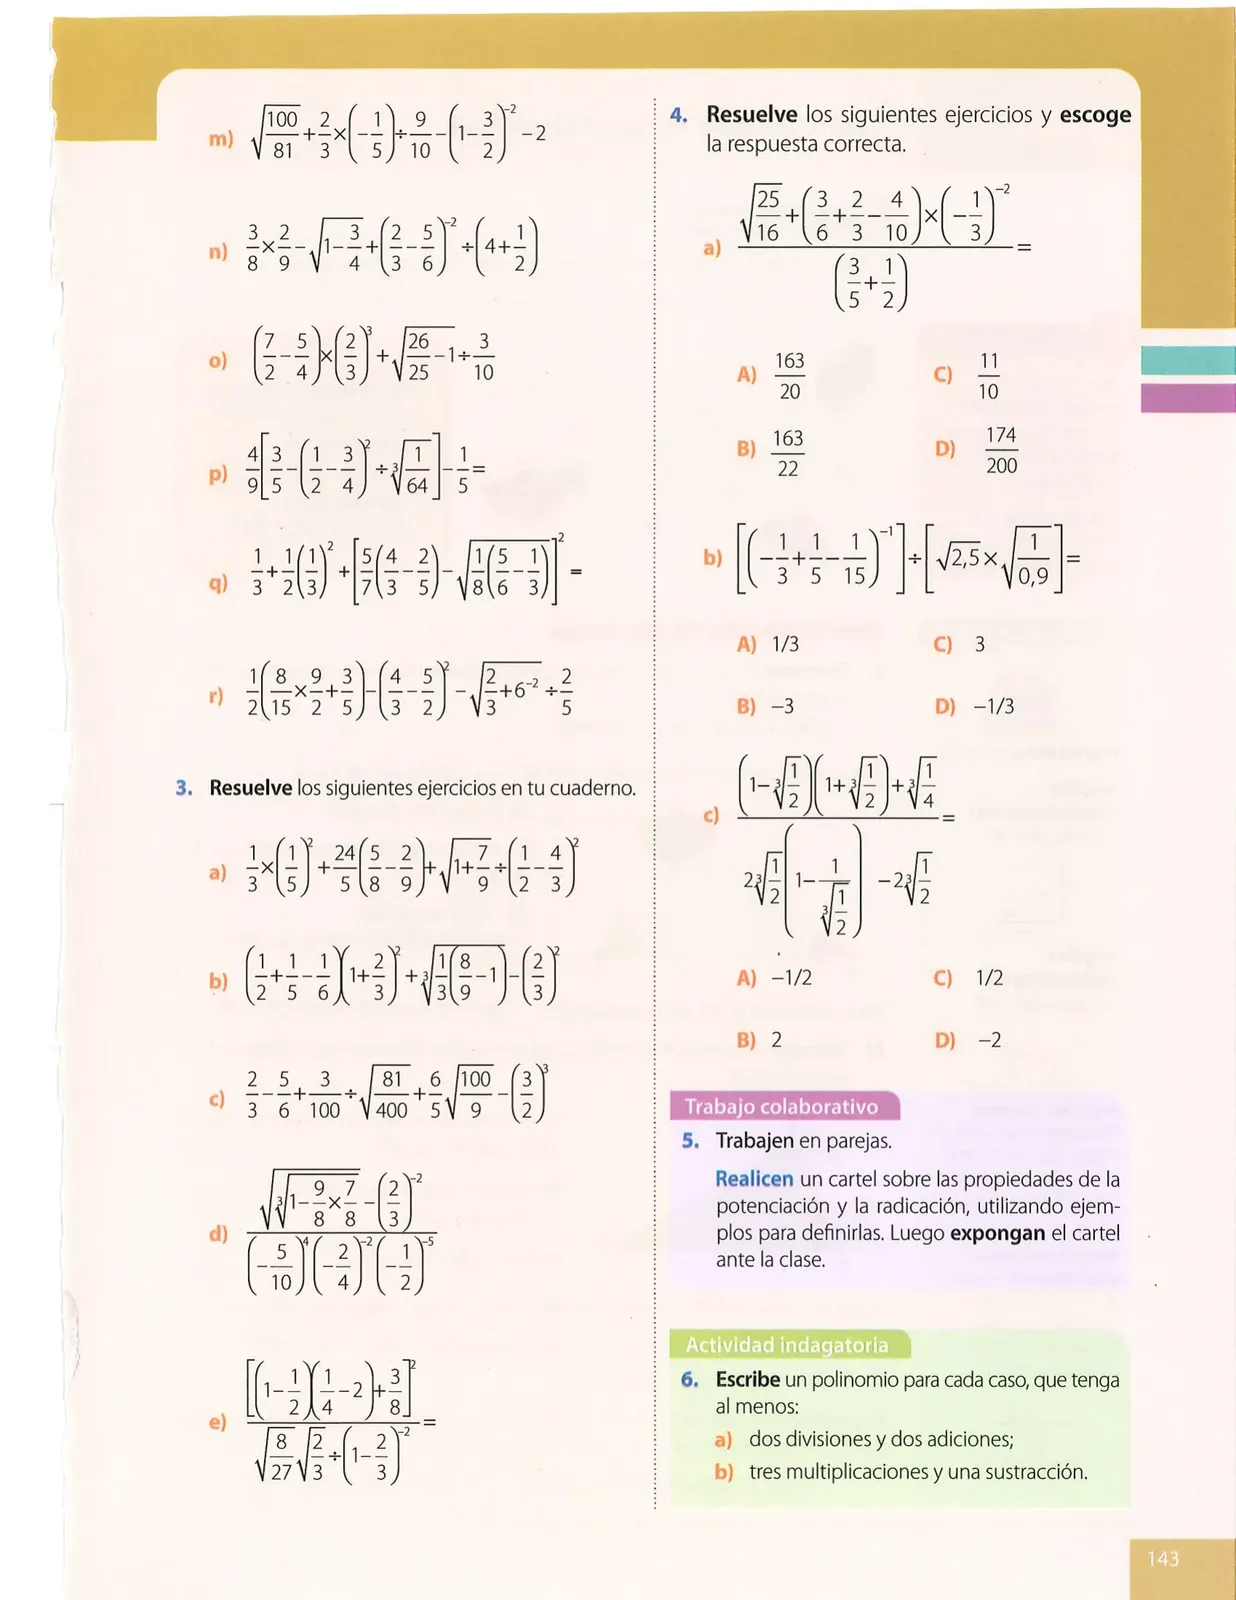 m) √(100/81) + 2/3 × (−1/5) ÷ 9/10 − (1 − 3/2)⁻² − 2
n) 3/8 × 2/9 − √(1 − 3/4) + (2/3 − 5/6)⁻² ÷ (4 + 1/2)
o) (7/2 − 5/4) × (2/3)³ + √(26/25 − 1) ÷ 3/10
p) 4/9 [3/5 − (1/2 − 3/4)² ÷ ∛(1/64)] − 1/5 =
q) 1/3 + 1/2 (1/3)² + [5/7 (4/3 − 2/5) − √(1/8 (5/6 − 1/3))]² =
r) 1/2 (8/15 × 9/2 + 3/5) − (4/3 − 5/2)² − √(2/3 + 6⁻²) ÷ 2/5
3. Resuelve los siguientes ejercicios en tu cuaderno.
a) 1/3 × (1/5)² + 24/5 (5/8 − 2/9) + √(1 + 7/9) ÷ (1/2 − 4/3)²
b) (1/2 + 1/5 − 1/6)(1 + 2/3)² + ∛(1/3 (8/9 − 1)) − (2/3)²
c) 2/3 − 5/6 + 3/100 ÷ √(81/400) + 6/5 √(100/9) − (3/2)³
d) (√(∛(1 − 9/8 × 7/8)) − (2/3)⁻²) / ((−5/10)⁴ (−2/4)⁻² (−1/2)⁻⁵)
e) [(1 − 1/2)(1/4 − 2) + 3/8]² / (√(8/27) √(2/3) ÷ (1 − 2/3)⁻²) =
4. Resuelve los siguientes ejercicios y escoge
la respuesta correcta.
a) (√(25/16) + (3/6 + 2/3 − 4/10) × (−1/3)⁻²) / (3/5 + 1/2) =
A) 163/20 C) 11/10
B) 163/22 D) 174/200
b) [(−1/3 + 1/5 − 1/15)⁻¹] ÷ [√2,5 × √(1/0,9)] =
A) 1/3 C) 3
B) −3 D) −1/3
c) ((1 − ∛(1/2))(1 + ∛(1/2)) + ∛(1/4)) / (2∛(1/2) (1 − 1/∛(1/2)) − 2∛(1/2)) =
A) −1/2 C) 1/2
B) 2 D) −2
Trabajo colaborativo
5. Trabajen en parejas.
Realicen un cartel sobre las propiedades de la
potenciación y la radicación, utilizando ejem-
plos para definirlas. Luego expongan el cartel
ante la clase.
Actividad indagatoria
6. Escribe un polinomio para cada caso, que tenga
al menos:
a) dos divisiones y dos adiciones;
b) tres multiplicaciones y una sustracción.
143